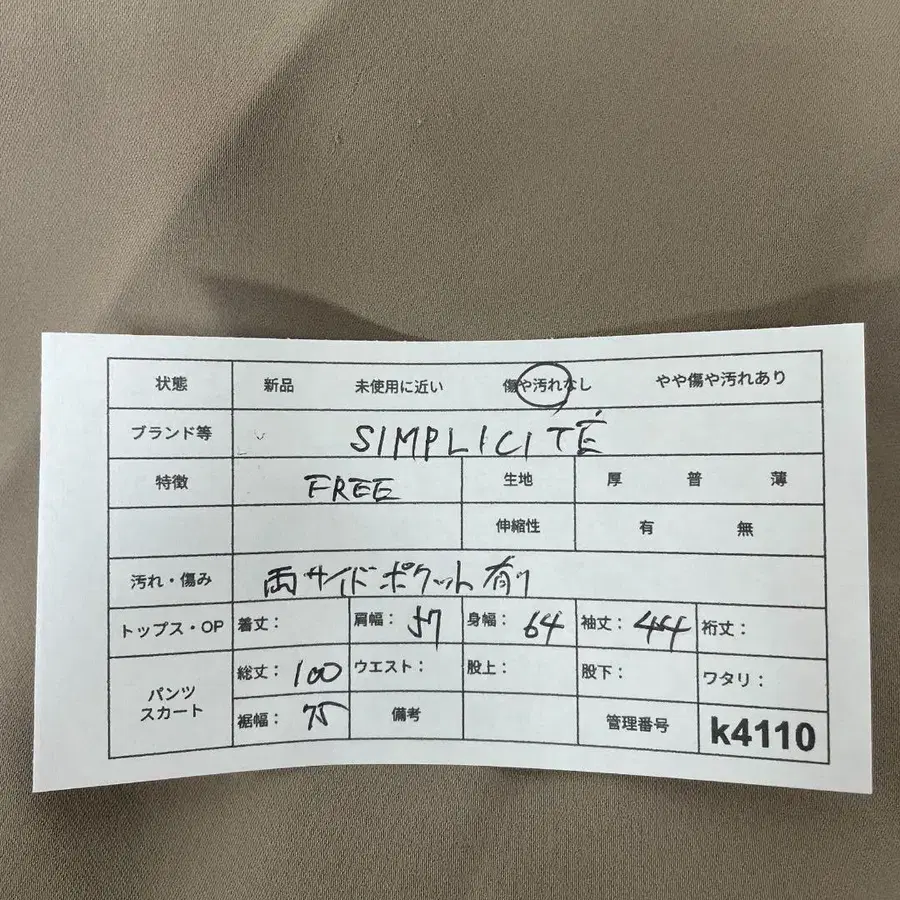 状態 新品 未使用に近い 傷や汚れなし やや傷や汚れあり
ブランド等 SIMPLICITÉ
特徴 FREE 生地 厚 普 薄
伸縮性 有 無
汚れ・傷み 両サイドポケット有り
トップス・OP 着丈： 肩幅：57 身幅：64 袖丈：44 裄丈：
パンツ スカート 総丈：100 ウエスト： 股上： 股下： ワタリ：
裾幅：75 備考 管理番号 k4110